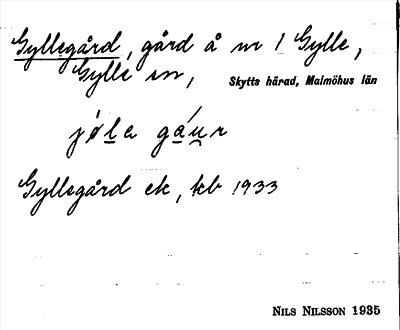 Gyllegård, gård å nr 1 Gylle,
Gylle sn, Skytts härad, Malmöhus län
jǿla gáu̯r
Gyllegård ek, kb 1933
NILS NILSSON 1935